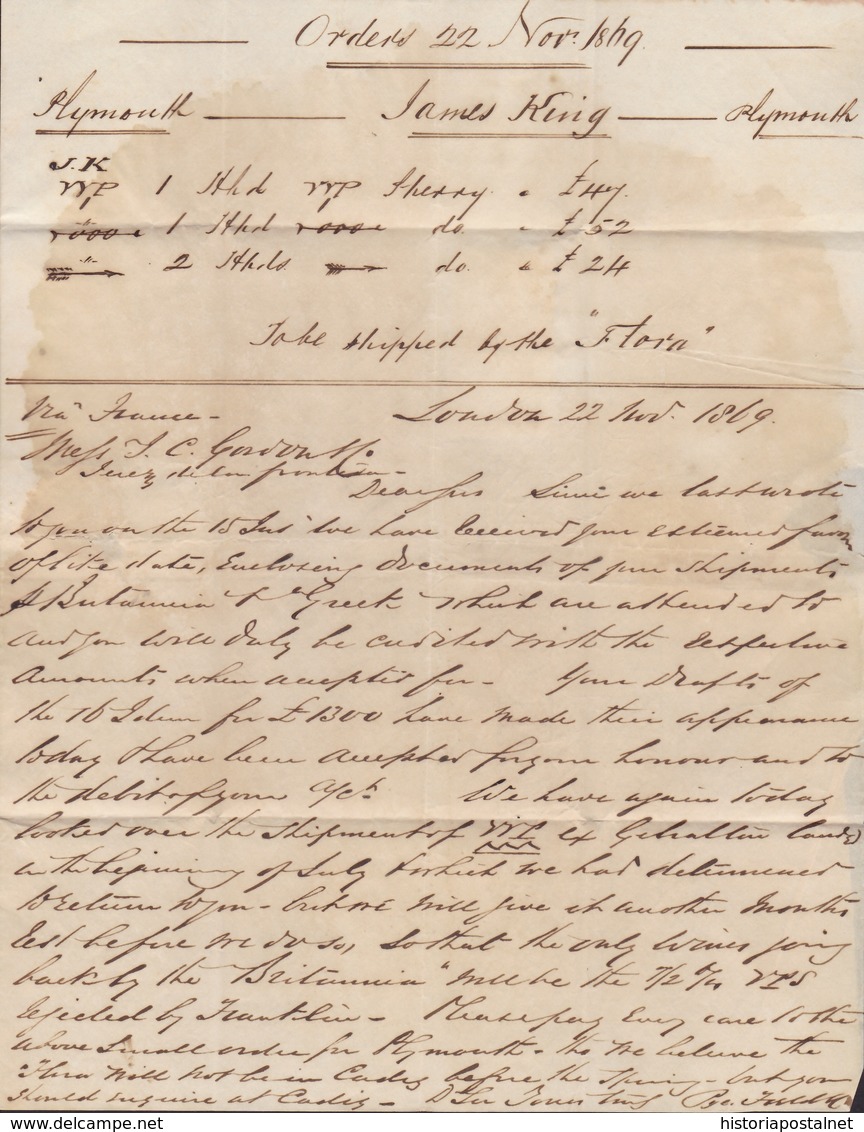 Orders 22 Novr. 1869.
Plymouth James King Plymouth
J.K
VVP 1 Hhd VVP Sherry " £47.
" 1 Hhd do. " £52
" 2 Hhds do. " £24
To be shipped by the "Flora"
Via France - London 22 Nov. 1869.
Messrs J. C. Gordon & Co.
Jerez de la frontera -
Dear Sirs Since we last wrote
to you on the 15 Inst we have received your esteemed favor
of like date, Enclosing documents of your shipments
p Britannia & "Greek" which are attended to
and you will duly be credited with the respective
amounts when accepted for - Your Drafts of
the 16 Idem for £1300 have made their appearance
today & have been accepted for your honour and to
the debit of your a/ct. We have again today
looked over the shipment of VVP ex Gibraltar landed
in the beginning of July & which we had determined
to return to you - but we will give it another months
test before we do so, so that the only Wines going
back by the "Britannia" will be the 7/2 VPS
rejected by Franklin - Please pay every care to the
above small order for Plymouth - tho we believe the
Flora will not be in Cadiz before the Spring - but you
should enquire at Cadiz - D Sir Yours truly
historiapostalnet